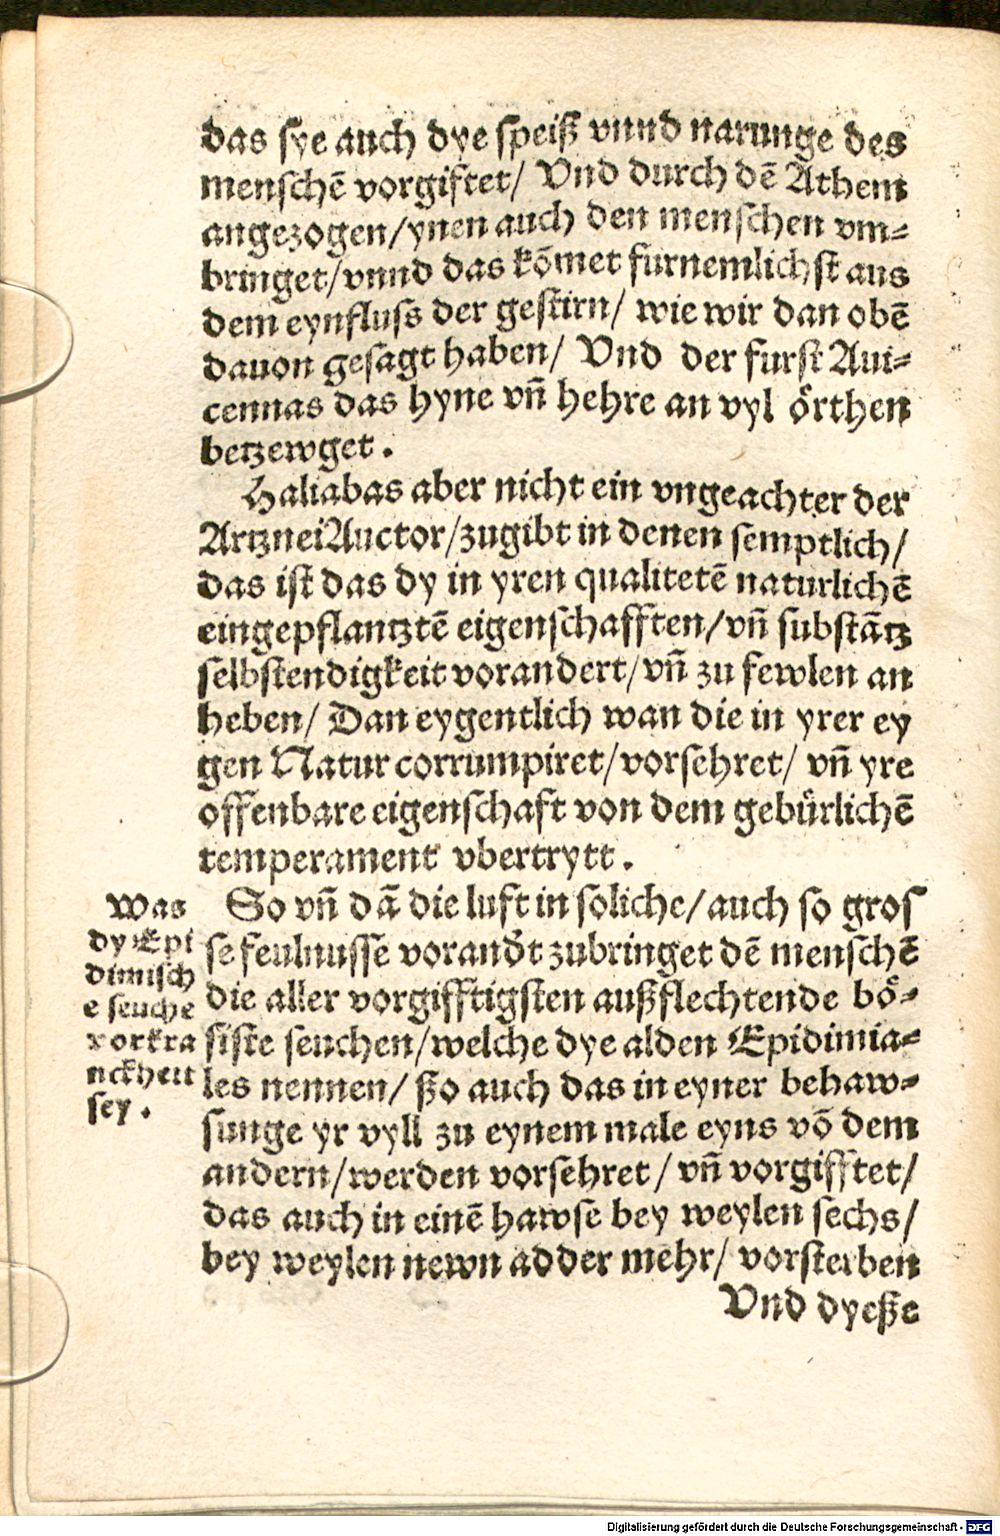 das sye auch dye speiß vnnd narunge des
menschē vorgiftet/ Vnd durch dē Athem
angezogen/ynen auch den menschen vm⸗
bringet/vnnd das kōmet furnemlichst aus
dem eynfluss der gestirn/ wie wir dan obē
dauon gesagt haben/ Vnd der furst Aui⸗
cennas das hyne vñ hehre an vyl örthen
betzewget.
Haliabas aber nicht ein vngeachter der
Artznei Auctor/zugibt in denen semptlich/
das ist das dy in yren qualitetē naturlichē
eingepflantztē eigenschafften/vñ substātz
selbstendigkeit vorandert/vñ zu fewlen an
heben/ Dan eygentlich wan die in yrer ey
gen Natur corrumpiret/vorsehret/ vñ yre
offenbare eigenschaft von dem gebürlichē
temperament vbertrytt.
Was
dy Epi
dimisch
e seuche
vorkra
nckheit
sey.
So vñ dā die luft in soliche/auch so gros
se feulnusse vorandt zubringet dē menschē
die aller vorgifftigsten außflechtende bö⸗
siste seuchen/welche dye alden Epidimia⸗
les nennen/ ßo auch das in eyner behaw⸗
sunge yr vyll zu eynem male eyns vō dem
andern/werden vorsehret/ vñ vorgifftet/
das auch in einē hawse bey weylen sechs/
bey weylen newn adder mehr/ vorsterben
Vnd dyeße
Digitalisierung gefördert durch die Deutsche Forschungsgemeinschaft - DFG